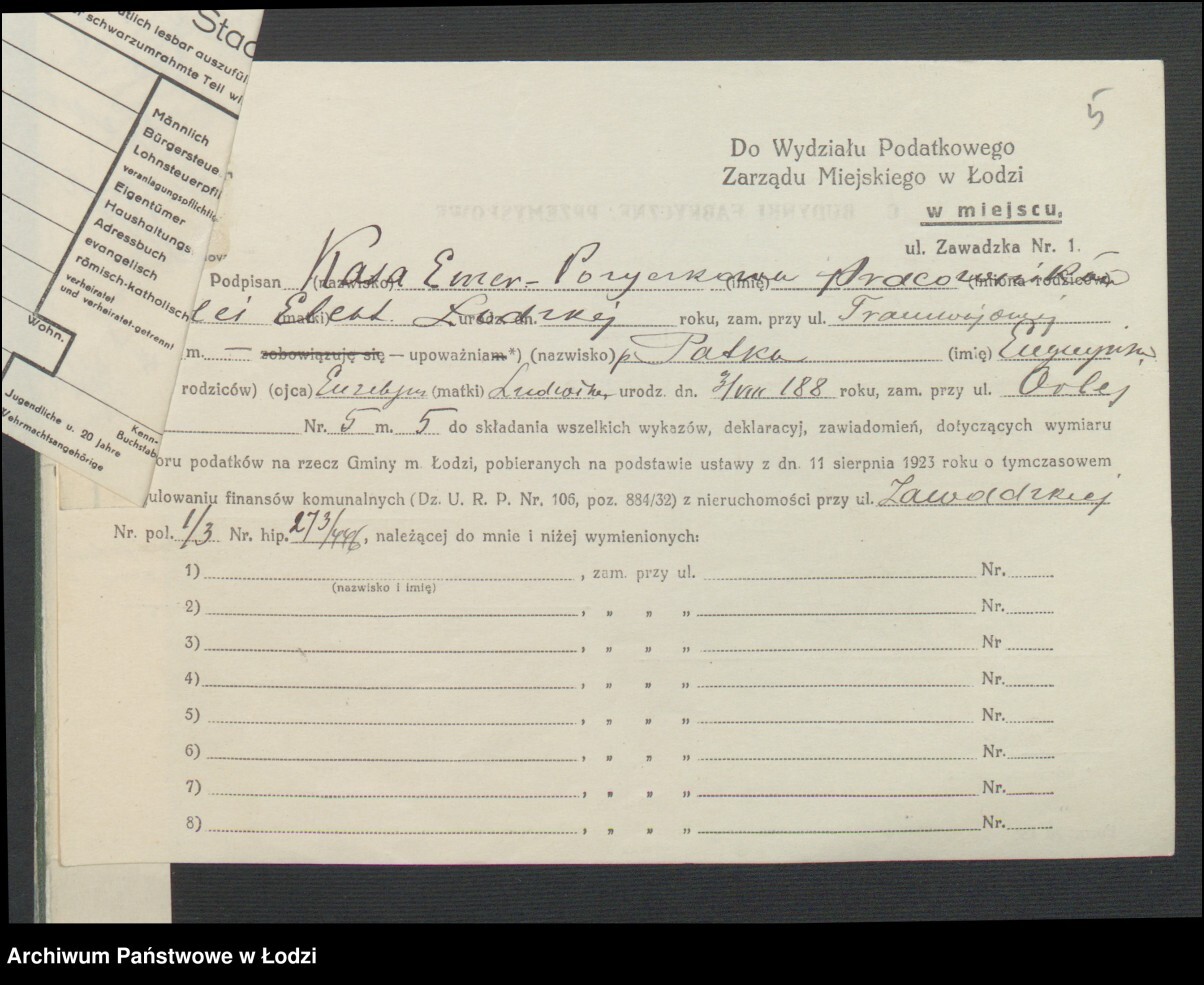 Stad
tlich lesbar auszufül
r schwarzumrahmte Teil wi
Männlich
Bürgersteue
Lohnsteuerpfli
veranlagungspflichtig
Eigentümer
Haushaltungs
Adressbuch
evangelisch
römisch-katholisch
verheiratet
und verheiratet-getrennt
Wohn.
Jugendliche u. 20 Jahre
Wehrmachtsangehörige
Kenn-
Buchstab
5
Do Wydziału Podatkowego
Zarządu Miejskiego w Łodzi
w miejscu,
ul. Zawadzka Nr. 1.
Podpisan (nazwisko) Kasa Emer.- Pożyczkowa (imię) Pracowników (imiona rodziców)
lei Elekt. (matki) Łódzkiej urodz. dn. roku, zam. przy ul. Tramwajowej
m. — zobowiązuję się — upoważniam*) (nazwisko) p. Patka (imię)
rodziców) (ojca) Euzebjusz (matki) Ludwika urodz. dn. 3/VIII 188 roku, zam. przy ul. Orlej
Nr. 5 m. 5 do składania wszelkich wykazów, deklaracyj, zawiadomień, dotyczących wymiaru
oru podatków na rzecz Gminy m. Łodzi, pobieranych na podstawie ustawy z dn. 11 sierpnia 1923 roku o tymczasowem
ulowaniu finansów komunalnych (Dz. U. R. P. Nr. 106, poz. 884/32) z nieruchomości przy ul. Zawadzkiej
Nr. pol. 1/3 Nr. hip. 273/446, należącej do mnie i niżej wymienionych:
1) , zam. przy ul. Nr.
(nazwisko i imię)
2) , „ „ „ Nr.
3) , „ „ „ Nr
4) , „ „ „ Nr.
5) , „ „ „ Nr.
6) , „ „ „ Nr.
7) , „ „ „ Nr.
8) , „ „ „ Nr.
Archiwum Państwowe w Łodzi